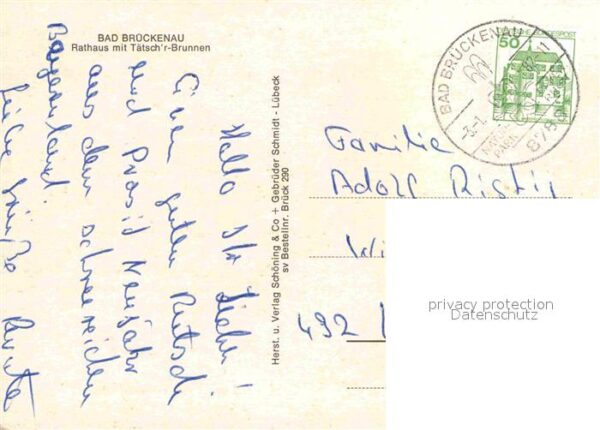 BAD BRÜCKENAU
Rathaus mit Tätsch'r-Brunnen
Hallo Ihr Lieben!
Einen guten Rutsch
und Prosit Neujahr
aus dem schneereichen
Bayernland.
Liebe Grüße Renate
Herst. u. Verlag Schöning & Co + Gebrüder Schmidt - Lübeck
sv Bestellnr. Brück 290
DEUTSCHE BUNDESPOST
50
BAD BRÜCKENAU
8788
PARK
Familie
Adolf Ristig
Wi
492
privacy protection
Datenschutz